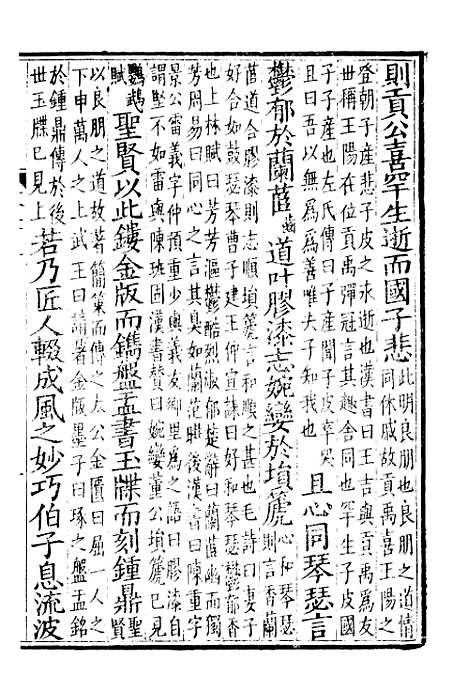 則貢公喜罕生逝而國子悲
此明良朋也良朋之道情
同休戚故貢禹喜王陽之
登朝子產悲子皮之永逝也漢書曰王吉與貢禹為友
世稱王陽在位貢禹彈冠言其趣舍同也罕生子皮國
子子產也左氏傳曰子產聞子皮卒哭
且曰吾以無為為善唯夫子知我也
且心同琴瑟言
鬱郁於蘭茝齒道叶膠漆志婉孌於塤篪
心和琴瑟
則言香蘭
茝道合膠漆則志順塤篪言和順之甚也毛詩曰妻子
好合如鼓瑟琴曹子建王仲宣誄曰好和琴瑟鬱郁香
也上林賦曰芳芳漚鬱酷烈淑郁楚辭曰蘭茝幽而獨
芳周易曰同心之言其臭如蘭范曄後漢書曰陳重字
景公雷義字仲預重少與義友鄉里為之語曰膠漆自
謂堅不如雷與陳班固漢書贊曰婉孌董公塤篪已見
鸚鵡
賦
聖賢以此鏤金版而鐫盤盂書玉牒而刻鍾鼎
聖
賢
以良朋之道故著簡策而傳之太公金匱曰屈一人之
下申萬人之上武王曰請著金版墨子曰琢之盤盂銘
於鍾鼎傳於後
世玉牒已見上
若乃匠人輟成風之妙巧伯子息流波